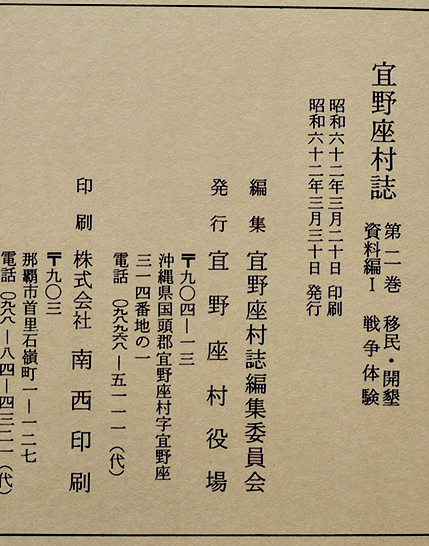 宜野座村誌
第二巻 移民・開墾
資料編Ⅰ 戦争体験
昭和六十二年三月二十日 印刷
昭和六十二年三月三十日 発行
編集 宜野座村誌編集委員会
発行 宜野座村役場
〒九〇四―一三
沖縄県国頭郡宜野座村字宜野座
三一四番地の一
電話 (〇九八九六)―五一一一(代)
印刷 株式会社 南西印刷
〒九〇三
那覇市首里石嶺町一―一二七
電話 (〇九八八)―八四―四三二一(代)